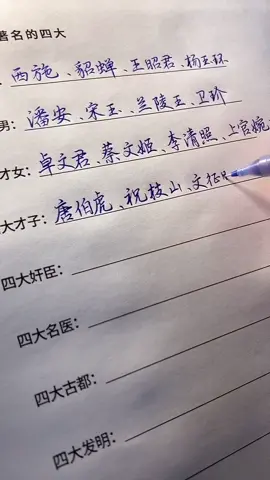 著名的四大
西施、貂蝉、王昭君、杨玉环
男：潘安、宋玉、兰陵王、卫玠
才女：卓文君、蔡文姬、李清照、上官婉
大才子：唐伯虎、祝枝山、文征
四大奸臣：
四大名医：
四大古都：
四大发明：